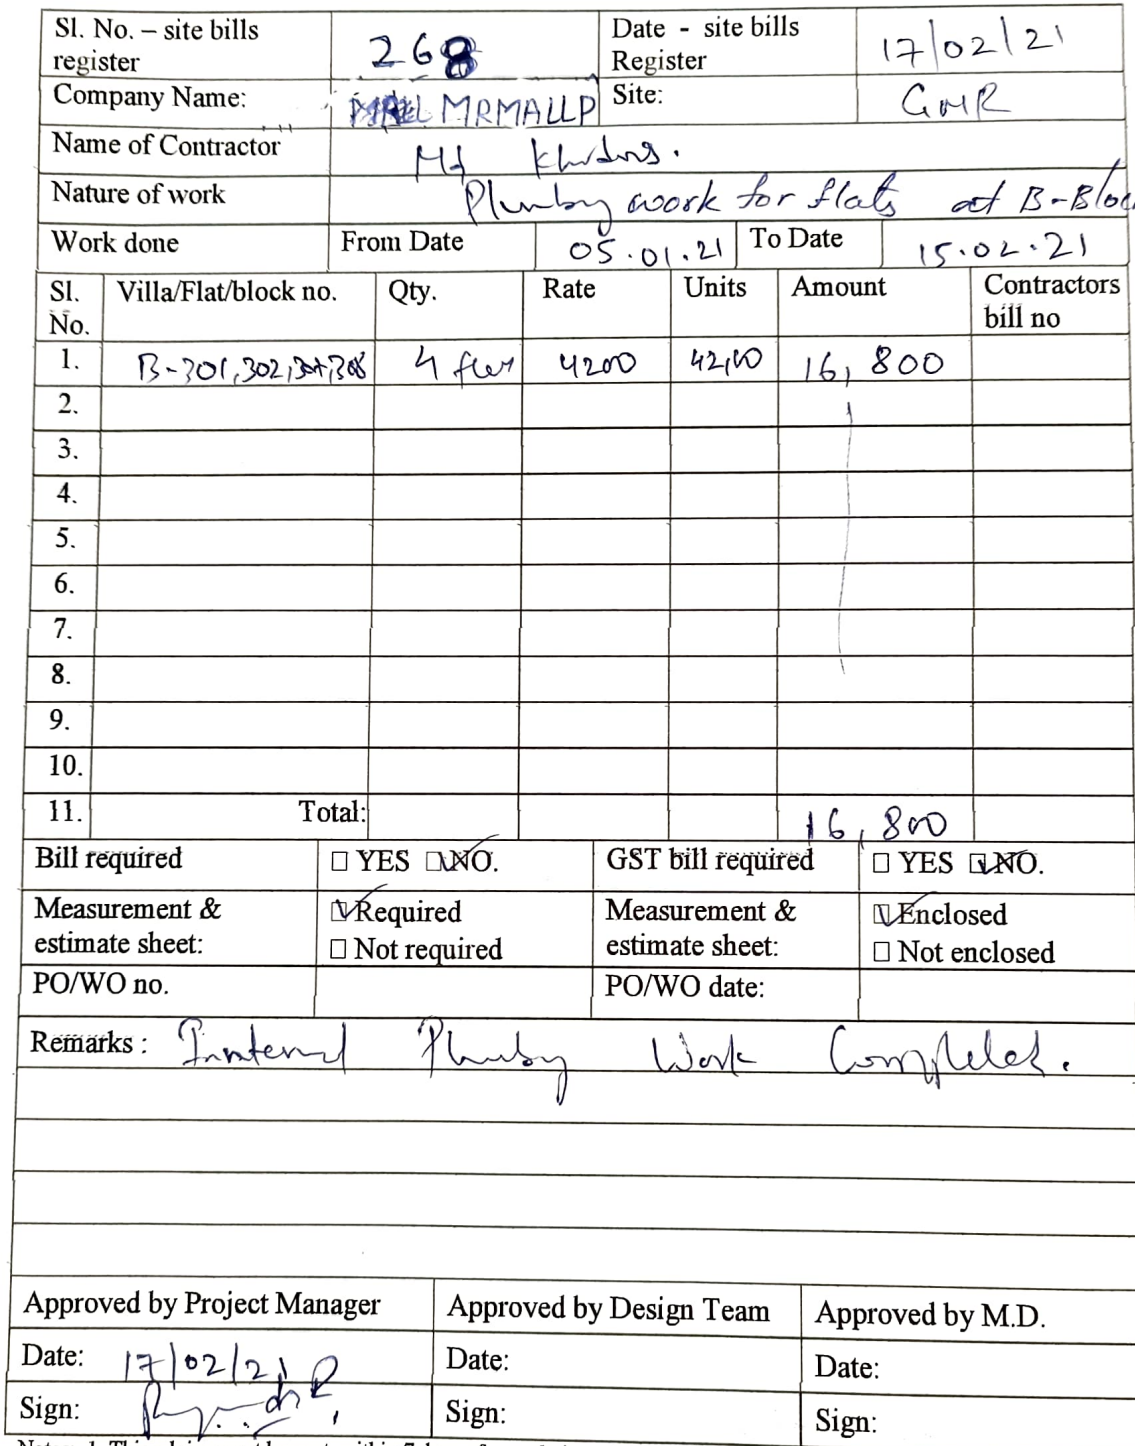 Sl. No. – site bills register 268 Date - site bills Register 17/02/21
Company Name: MRMALLP Site: GMR
Name of Contractor Md
Nature of work Plumbing work for flats at B-Block
Work done From Date 05.01.21 To Date 15.02.21
Sl. No. Villa/Flat/block no. Qty. Rate Units Amount Contractors bill no
1. B-301,302, 4 4200 16,800
2.
3.
4.
5.
6.
7.
8.
9.
10.
11. Total: 16,800
Bill required ☐ YES ☑ NO. GST bill required ☐ YES ☑ NO.
Measurement & estimate sheet: ☑ Required ☐ Not required Measurement & estimate sheet: ☑ Enclosed ☐ Not enclosed
PO/WO no. PO/WO date:
Remarks : Internal Plumbing Work Completed.
Approved by Project Manager Approved by Design Team Approved by M.D.
Date: 17/02/21 Date: Date:
Sign: Sign: Sign: